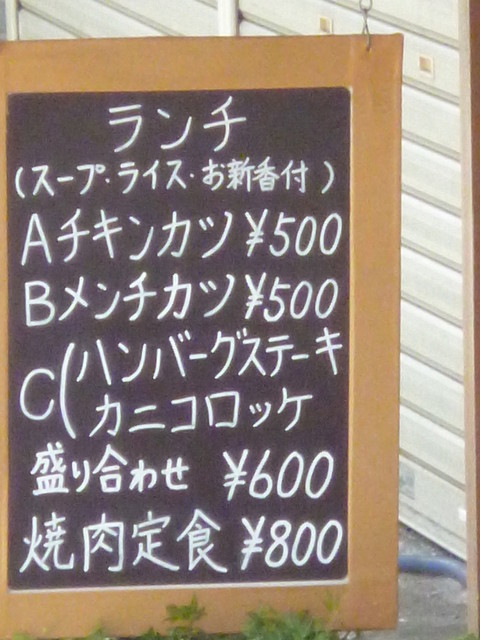 ランチ
(スープ・ライス・お新香付)
Aチキンカツ ¥500
Bメンチカツ ¥500
C(ハンバーグステーキ
カニコロッケ
盛り合わせ ¥600
焼肉定食 ¥800